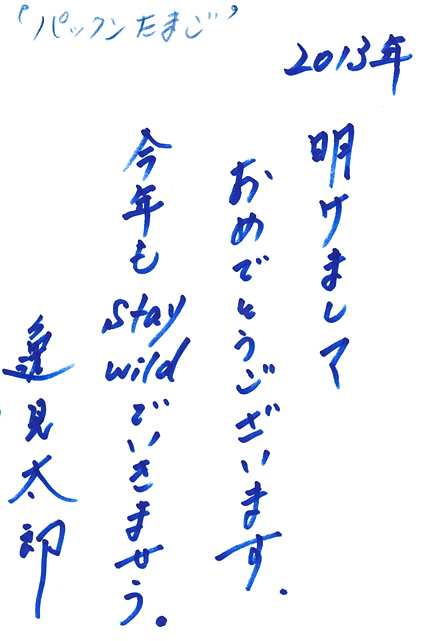 “パックンたまご”
2013年
明けまして
おめでとうございます.
今年も stay wild でいきませう.
逸見太郎